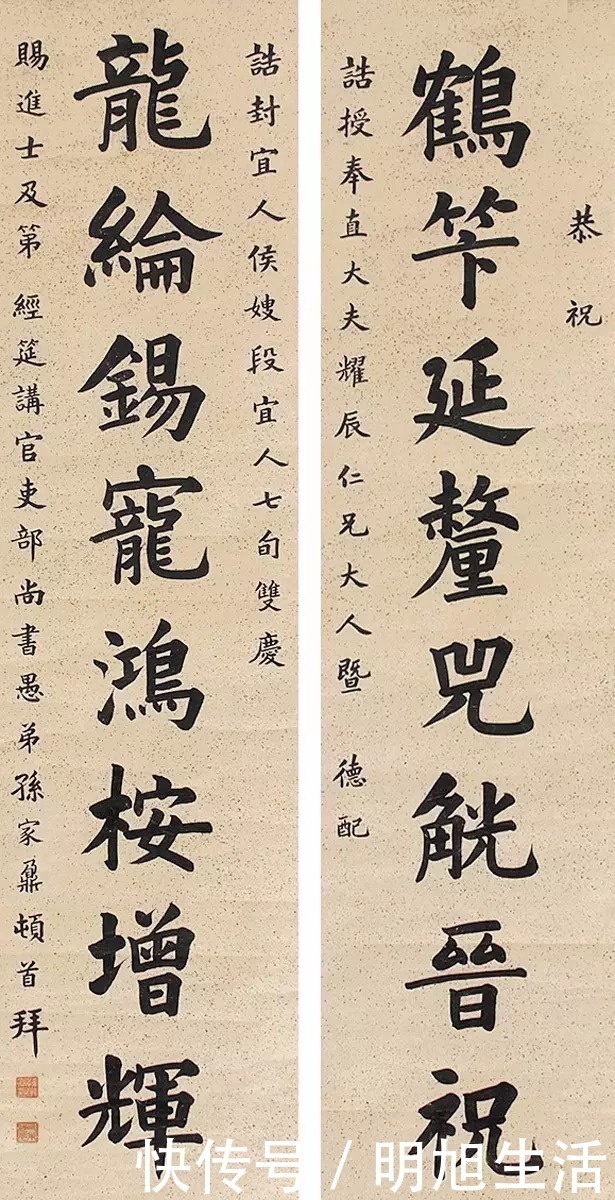 恭祝
鶴笇延釐兕觥晉祝
誥授奉直大夫耀辰仁兄大人暨 德配
誥封宜人侯嫂段宜人七旬雙慶
龍綸錫寵鴻桉增輝
賜進士及第 經筵講官吏部尚書愚弟孫家鼐頓首拜
快传号 / 明旭生活